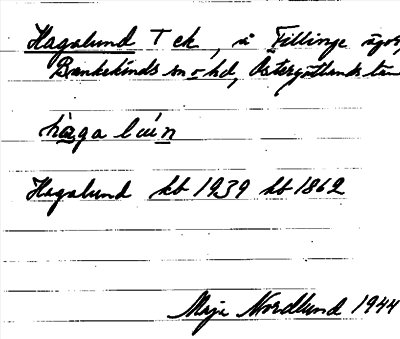 Hagalund T ck, å Fillinge ägor,
Bankekinds sn o hd, Östergötlands län
hàga lún
Hagalund kb 1939 hb 1862
Maja Nordlund 1944